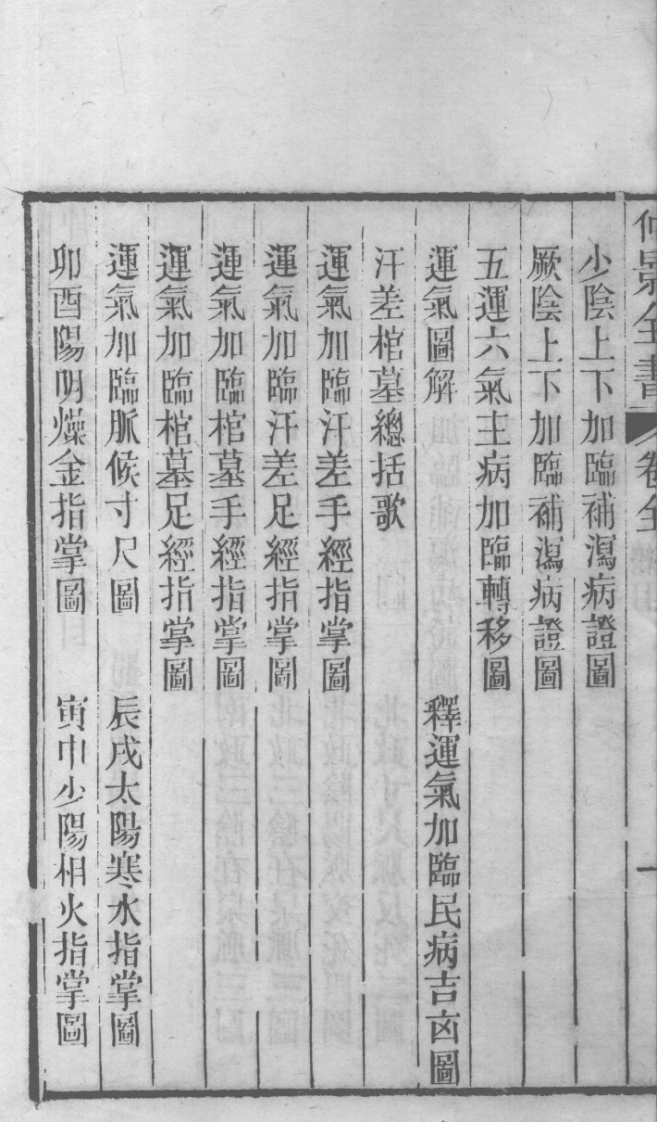 仲景全書 卷全 一
少陰上下加臨補瀉病證圖
厥陰上下加臨補瀉病證圖
五運六氣主病加臨轉移圖
運氣圖解 釋運氣加臨民病吉凶圖
汗差棺墓總括歌
運氣加臨汗差手經指掌圖
運氣加臨汗差足經指掌圖
運氣加臨棺墓手經指掌圖
運氣加臨棺墓足經指掌圖
運氣加臨脈候寸尺圖 辰戌太陽寒水指掌圖
卯酉陽明燥金指掌圖 寅申少陽相火指掌圖